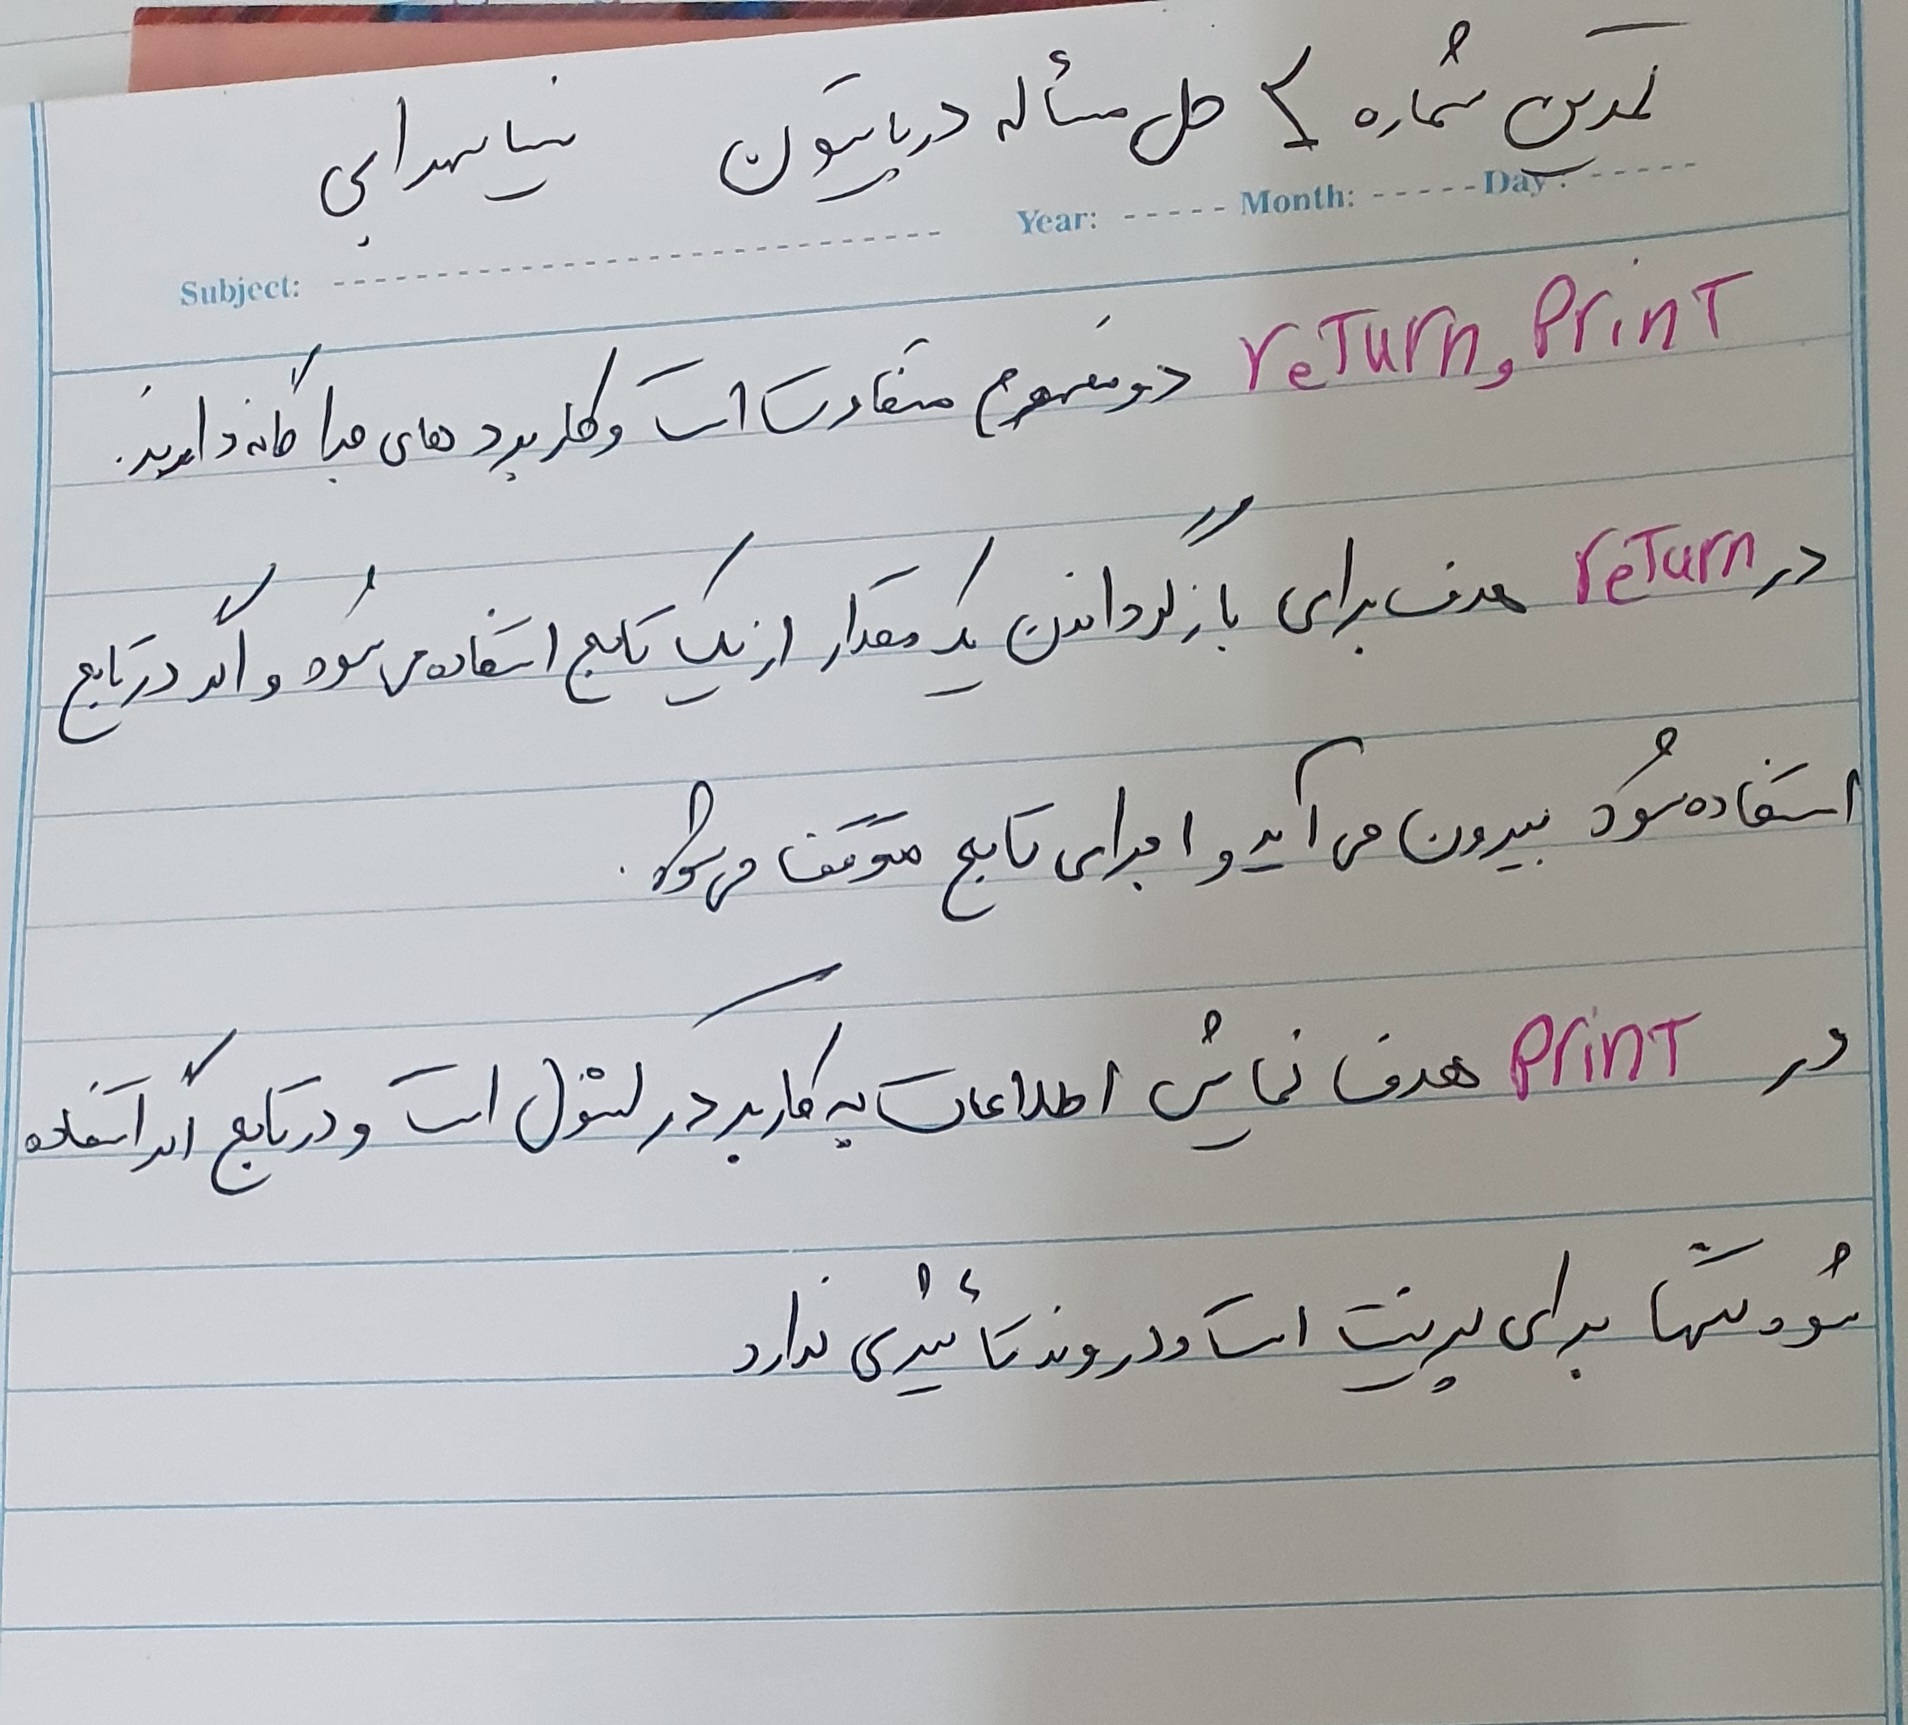 تمرین شماره ۲ حل مسأله در پایتون نیما سهرابی
Subject: Year: Month: Day:
print و return دو مفهوم متفاوت است و کاربرد های جدا گانه دارند.
در return هدف برای بازگرداندن یک مقدار از یک تابع استفاده می شود و اگر در تابع
استفاده شود بیرون می آید و اجرای تابع متوقف می شود.
در print هدف نمایش اطلاعات به کاربر در کنسول است و در تابع اگر استفاده
شود تنها برای پرینت است و در روند تأثیری ندارد